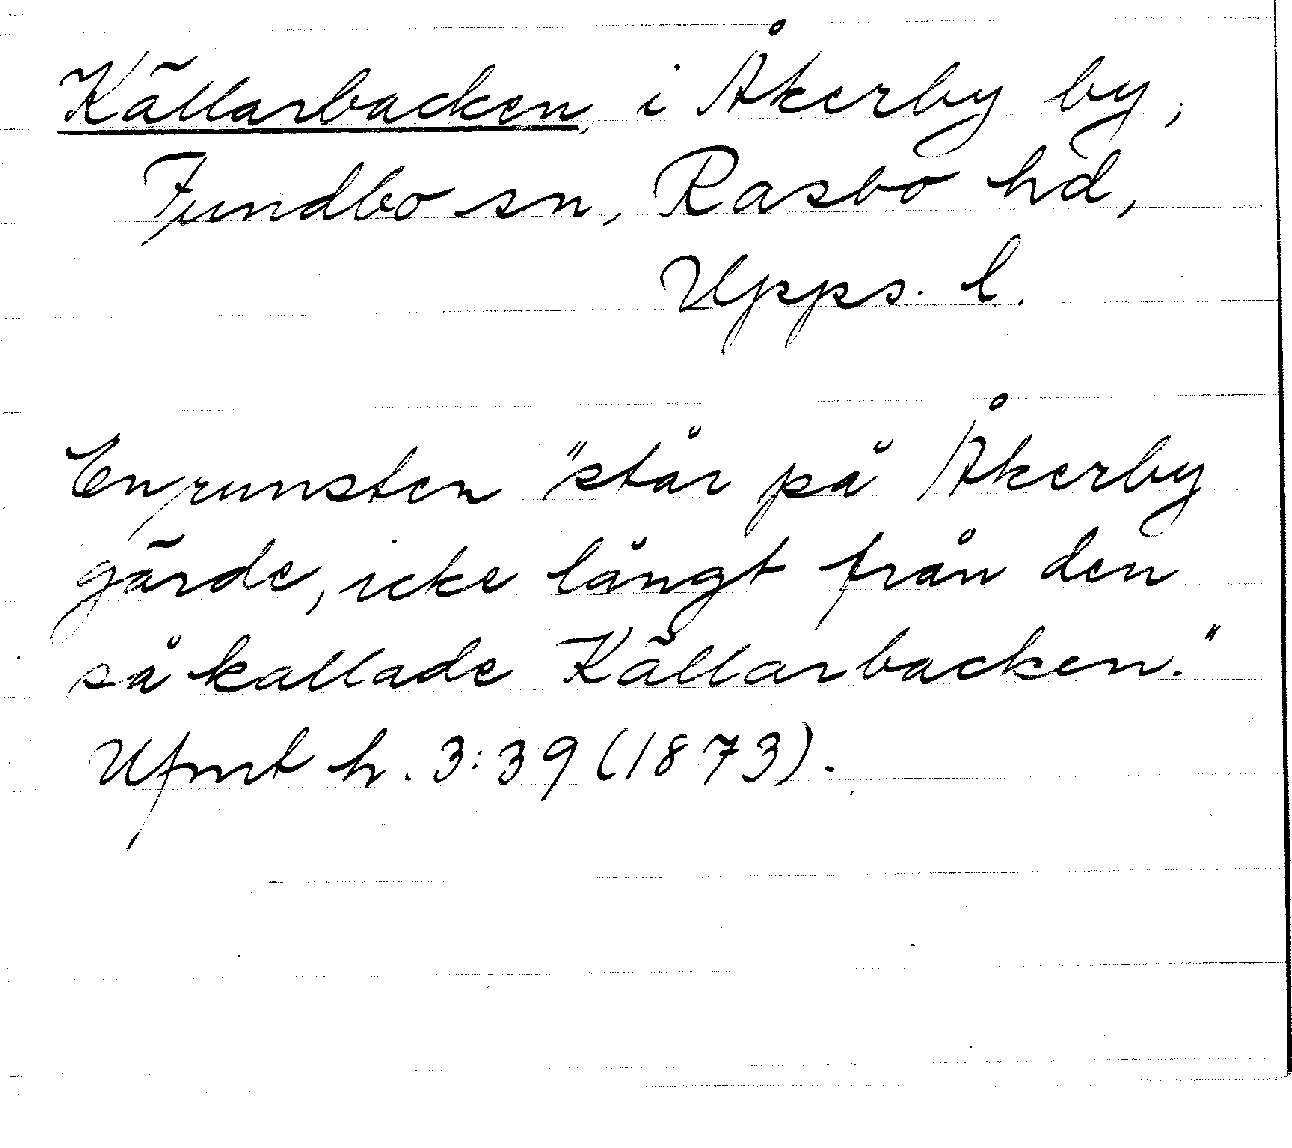 Källarbacken, i Åkerby by,
Fundbo sn, Rasbo hd,
Upps. l.
En runsten "står på Åkerby
gärde, icke långt från den
så kallade Källarbacken."
Ufmt h. 3:39 (1873).